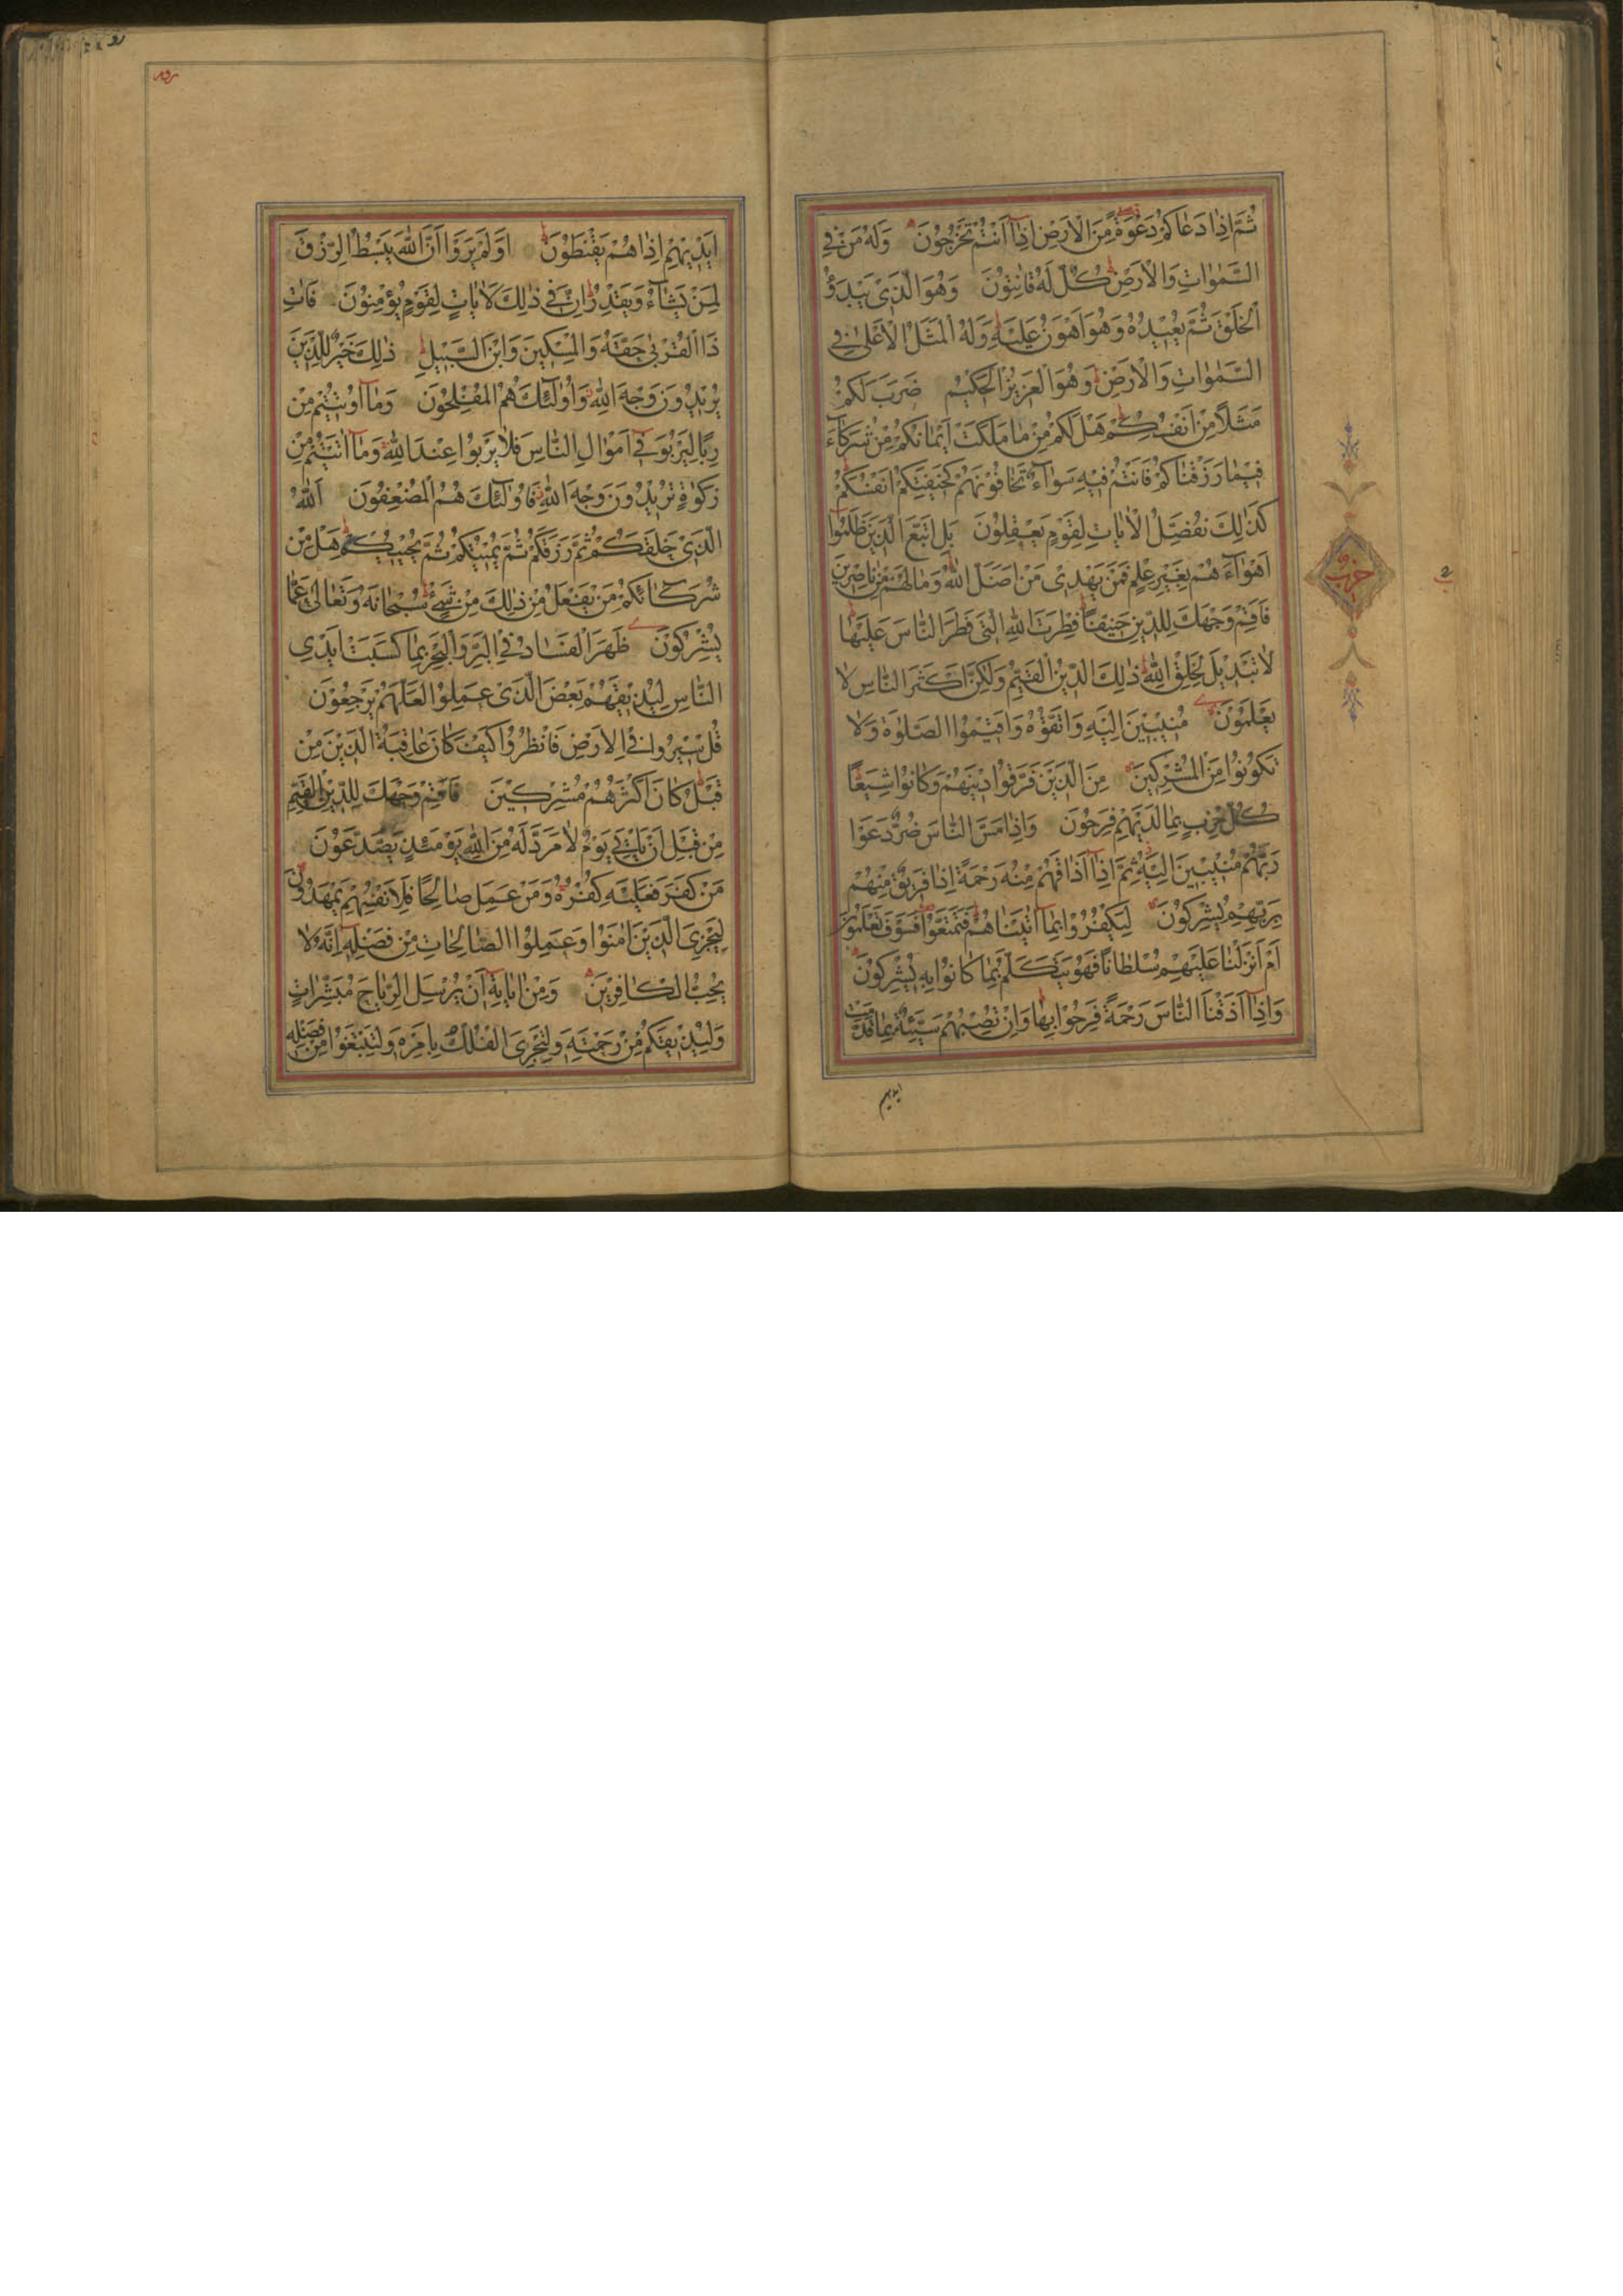 ثُمَّ اِذَا دَعَاكُمْ دَعْوَةً مِنَ الْاَرْضِ اِذَآ اَنْتُمْ تَخْرُجُوْنَ وَلَهُ مَنْ فِي
السَّمٰوَاتِ وَالْاَرْضِ كُلٌّ لَهُ قَانِتُوْنَ وَهُوَ الَّذِيْ يَبْدَؤُ
الْخَلْقَ ثُمَّ يُعِيْدُهُ وَهُوَ اَهْوَنُ عَلَيْهِ وَلَهُ الْمَثَلُ الْاَعْلٰى فِي
السَّمٰوَاتِ وَالْاَرْضِ وَهُوَ الْعَزِيْزُ الْحَكِيْمُ ضَرَبَ لَكُمْ
مَثَلًا مِنْ اَنْفُسِكُمْ هَلْ لَكُمْ مِنْ مَا مَلَكَتْ اَيْمَانُكُمْ مِنْ شُرَكَآءَ
فِيْمَا رَزَقْنَاكُمْ فَاَنْتُمْ فِيْهِ سَوَآءٌ تَخَافُوْنَهُمْ كَخِيْفَتِكُمْ اَنْفُسَكُمْ
كَذٰلِكَ نُفَصِّلُ الْاٰيَاتِ لِقَوْمٍ يَعْقِلُوْنَ بَلِ اتَّبَعَ الَّذِيْنَ ظَلَمُوْا
اَهْوَآءَهُمْ بِغَيْرِ عِلْمٍ فَمَنْ يَهْدِيْ مَنْ اَضَلَّ اللّٰهُ وَمَا لَهُمْ مِنْ نَاصِرِيْنَ
فَاَقِمْ وَجْهَكَ لِلدِّيْنِ حَنِيْفًا فِطْرَتَ اللّٰهِ الَّتِيْ فَطَرَ النَّاسَ عَلَيْهَا
لَا تَبْدِيْلَ لِخَلْقِ اللّٰهِ ذٰلِكَ الدِّيْنُ الْقَيِّمُ وَلٰكِنَّ اَكْثَرَ النَّاسِ لَا
يَعْلَمُوْنَ مُنِيْبِيْنَ اِلَيْهِ وَاتَّقُوْهُ وَاَقِيْمُوا الصَّلٰوةَ وَلَا
تَكُوْنُوْا مِنَ الْمُشْرِكِيْنَ مِنَ الَّذِيْنَ فَرَّقُوْا دِيْنَهُمْ وَكَانُوْا شِيَعًا
كُلُّ حِزْبٍ بِمَا لَدَيْهِمْ فَرِحُوْنَ وَاِذَا مَسَّ النَّاسَ ضُرٌّ دَعَوْا
رَبَّهُمْ مُنِيْبِيْنَ اِلَيْهِ ثُمَّ اِذَآ اَذَاقَهُمْ مِنْهُ رَحْمَةً اِذَا فَرِيْقٌ مِنْهُمْ
بِرَبِّهِمْ يُشْرِكُوْنَ لِيَكْفُرُوْا بِمَآ اٰتَيْنَاهُمْ فَتَمَتَّعُوْا فَسَوْفَ تَعْلَمُوْنَ
اَمْ اَنْزَلْنَا عَلَيْهِمْ سُلْطَانًا فَهُوَ يَتَكَلَّمُ بِمَا كَانُوْا بِهِ يُشْرِكُوْنَ
وَاِذَآ اَذَقْنَا النَّاسَ رَحْمَةً فَرِحُوْا بِهَا وَاِنْ تُصِبْهُمْ سَيِّئَةٌ بِمَا قَدَّمَتْ
ايديهم
حزب
اَيْدِيْهِمْ اِذَا هُمْ يَقْنَطُوْنَ اَوَلَمْ يَرَوْا اَنَّ اللّٰهَ يَبْسُطُ الرِّزْقَ
لِمَنْ يَشَآءُ وَيَقْدِرُ اِنَّ فِيْ ذٰلِكَ لَاٰيَاتٍ لِقَوْمٍ يُؤْمِنُوْنَ فَاٰتِ
ذَا الْقُرْبٰى حَقَّهُ وَالْمِسْكِيْنَ وَابْنَ السَّبِيْلِ ذٰلِكَ خَيْرٌ لِلَّذِيْنَ
يُرِيْدُوْنَ وَجْهَ اللّٰهِ وَاُولٰئِكَ هُمُ الْمُفْلِحُوْنَ وَمَآ اٰتَيْتُمْ مِنْ
رِبًا لِيَرْبُوَ فِيْ اَمْوَالِ النَّاسِ فَلَا يَرْبُوا عِنْدَ اللّٰهِ وَمَآ اٰتَيْتُمْ مِنْ
زَكٰوةٍ تُرِيْدُوْنَ وَجْهَ اللّٰهِ فَاُولٰئِكَ هُمُ الْمُضْعِفُوْنَ اَللّٰهُ
الَّذِيْ خَلَقَكُمْ ثُمَّ رَزَقَكُمْ ثُمَّ يُمِيْتُكُمْ ثُمَّ يُحْيِيْكُمْ هَلْ مِنْ
شُرَكَائِكُمْ مَنْ يَفْعَلُ مِنْ ذٰلِكَ مِنْ شَيْءٍ سُبْحَانَهُ وَتَعَالٰى عَمَّا
يُشْرِكُوْنَ ظَهَرَ الْفَسَادُ فِي الْبَرِّ وَالْبَحْرِ بِمَا كَسَبَتْ اَيْدِي
النَّاسِ لِيُذِيْقَهُمْ بَعْضَ الَّذِيْ عَمِلُوْا لَعَلَّهُمْ يَرْجِعُوْنَ
قُلْ سِيْرُوا فِي الْاَرْضِ فَانْظُرُوْا كَيْفَ كَانَ عَاقِبَةُ الَّذِيْنَ مِنْ
قَبْلُ كَانَ اَكْثَرُهُمْ مُشْرِكِيْنَ فَاَقِمْ وَجْهَكَ لِلدِّيْنِ الْقَيِّمِ
مِنْ قَبْلِ اَنْ يَاْتِيَ يَوْمٌ لَا مَرَدَّ لَهُ مِنَ اللّٰهِ يَوْمَئِذٍ يَصَّدَّعُوْنَ
مَنْ كَفَرَ فَعَلَيْهِ كُفْرُهُ وَمَنْ عَمِلَ صَالِحًا فَلِاَنْفُسِهِمْ يَمْهَدُوْنَ
لِيَجْزِيَ الَّذِيْنَ اٰمَنُوْا وَعَمِلُوا الصَّالِحَاتِ مِنْ فَضْلِهِ اِنَّهُ لَا
يُحِبُّ الْكَافِرِيْنَ وَمِنْ اٰيَاتِهِ اَنْ يُرْسِلَ الرِّيَاحَ مُبَشِّرَاتٍ
وَلِيُذِيْقَكُمْ مِنْ رَحْمَتِهِ وَلِتَجْرِيَ الْفُلْكُ بِاَمْرِهِ وَلِتَبْتَغُوْا مِنْ فَضْلِهِ